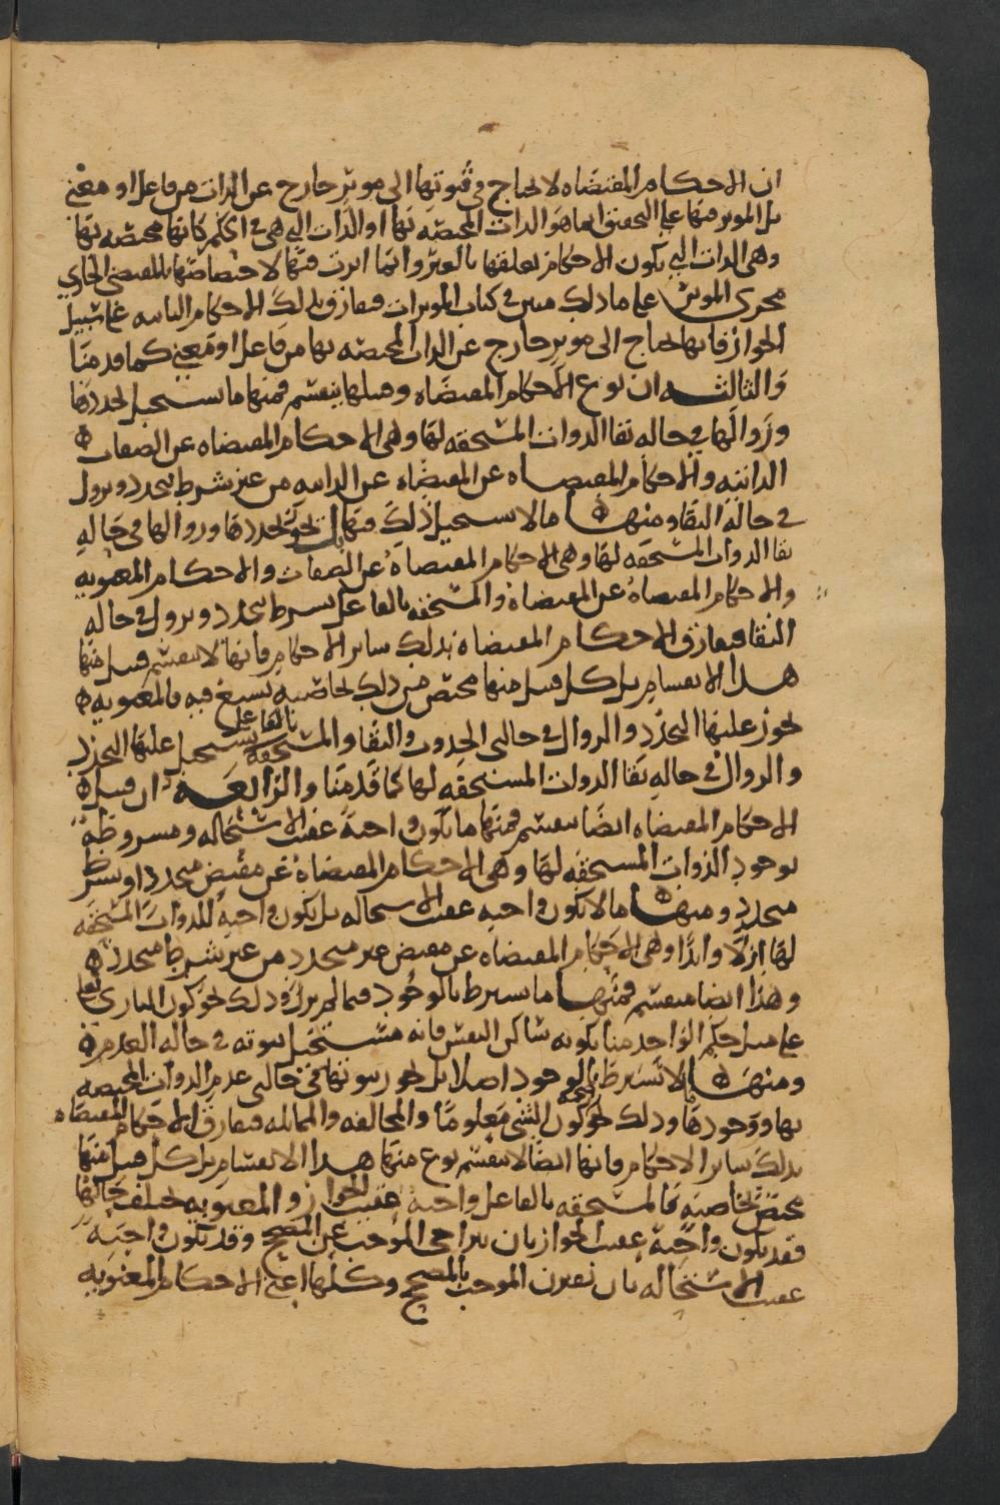 ان الاحكام المقتضاه لا تحتاج في ثبوتها الى موثر خارج عن الذات من فاعل او معنى
بل الموثر فيها على التحقيق انما هو الذات المختصه بها او الذات التي هي في الحكم كانها مختصه بها
وهي الذات التي تكون الاحكام تعلقها بالغير وانما اثرت فيها لاختصاصها بالمقتضي الجاري
مجرى الموثر على ما ذلك مبين في كتاب الموثرات ففارق بذلك الاحكام الثابته على سبيل
الجواز فانها تحتاج الى موثر خارج عن الذات المختصه بها من فاعل او معنى كما قدمنا
والثالثه ان نوع الاحكام المقتضاه وقبيلها ينقسم فمنها ما يستحيل تجددها
وزوالها في حاله بقا الذوات المستحقه لها وهي الاحكام المقتضاه عن الصفات
الذاتيه والاحكام المقتضاه عن المقتضاه عن الذاتيه من غير شرط يتجدد ويزول
في حاله البقا ومنها ما لا يستحيل ذلك فيها بل يجوز تجددها وزوالها في حاله
بقا الذوات المستحقه لها وهي الاحكام المقتضاه عن الصفات والاحكام المعنويه
والاحكام المقتضاه عن المقتضاه والمستحقه بالفاعل بشرط يتجدد ويزول في حاله
البقا ففارق الاحكام المقتضاه بذلك ساير الاحكام فانها لا ينقسم قبيل منها
هذا الانقسام بل كل قبيل منها مختص من ذلك بخاصيه فالمعنويه
يجوز عليها التجدد والزوال في حالتي الحدوث والبقا والمستحقه بالفاعل يستحيل عليها التجدد
والزوال في حاله بقا الذوات المستحقه لها كما قدمنا والرابعه ان قبيل
الاحكام المقتضاه ايضا ينقسم فمنها ما يكون واجبة عقيب الاستحاله ومشروطة
بوجود الذوات المستحقه لها وهي الاحكام المقتضاه عن مقتض متجدد او بشرط
متجدد ومنها ما لا يكون واجبه عقيب الاستحاله بل يكون واجبة للذوات المستحقه
لها ازلا وابدا وهي الاحكام المقتضاه عن مقتض غير متجدد من غير شرط متجدد
وهذا ايضا منقسم فمنها ما يشترط بالوجود فيما لم يزل وذلك نحو كون الباري تعالى
على مثل حكم الواحد منا بكونه ساكن النفس فانه مستحيل ثبوته في حاله العدم
ومنها ما لا تشترط بالوجود اصلا بل يجوز ثبوتها في حالتي عدم الذوات المختصه
بها ووجودها وذلك نحو صحه كون الشي معلوما والمخالفه والمماثله ففارق الاحكام المقتضاه
بذلك ساير الاحكام فانها ايضا لا ينقسم نوع منها هذا الانقسام بل كل قبيل منها
مختص بخاصيه فالمستحقه بالفاعل واجبة عقيب الجواز والمعنويه تختلف حالها
فقد يكون واجبة عقيب الجواز بان يتراخى الموجب عن المصحح وقد تكون واجبة
عقيب الاستحاله بان يقترن الموجب بالمصحح وكلها اعني الاحكام المعنويه